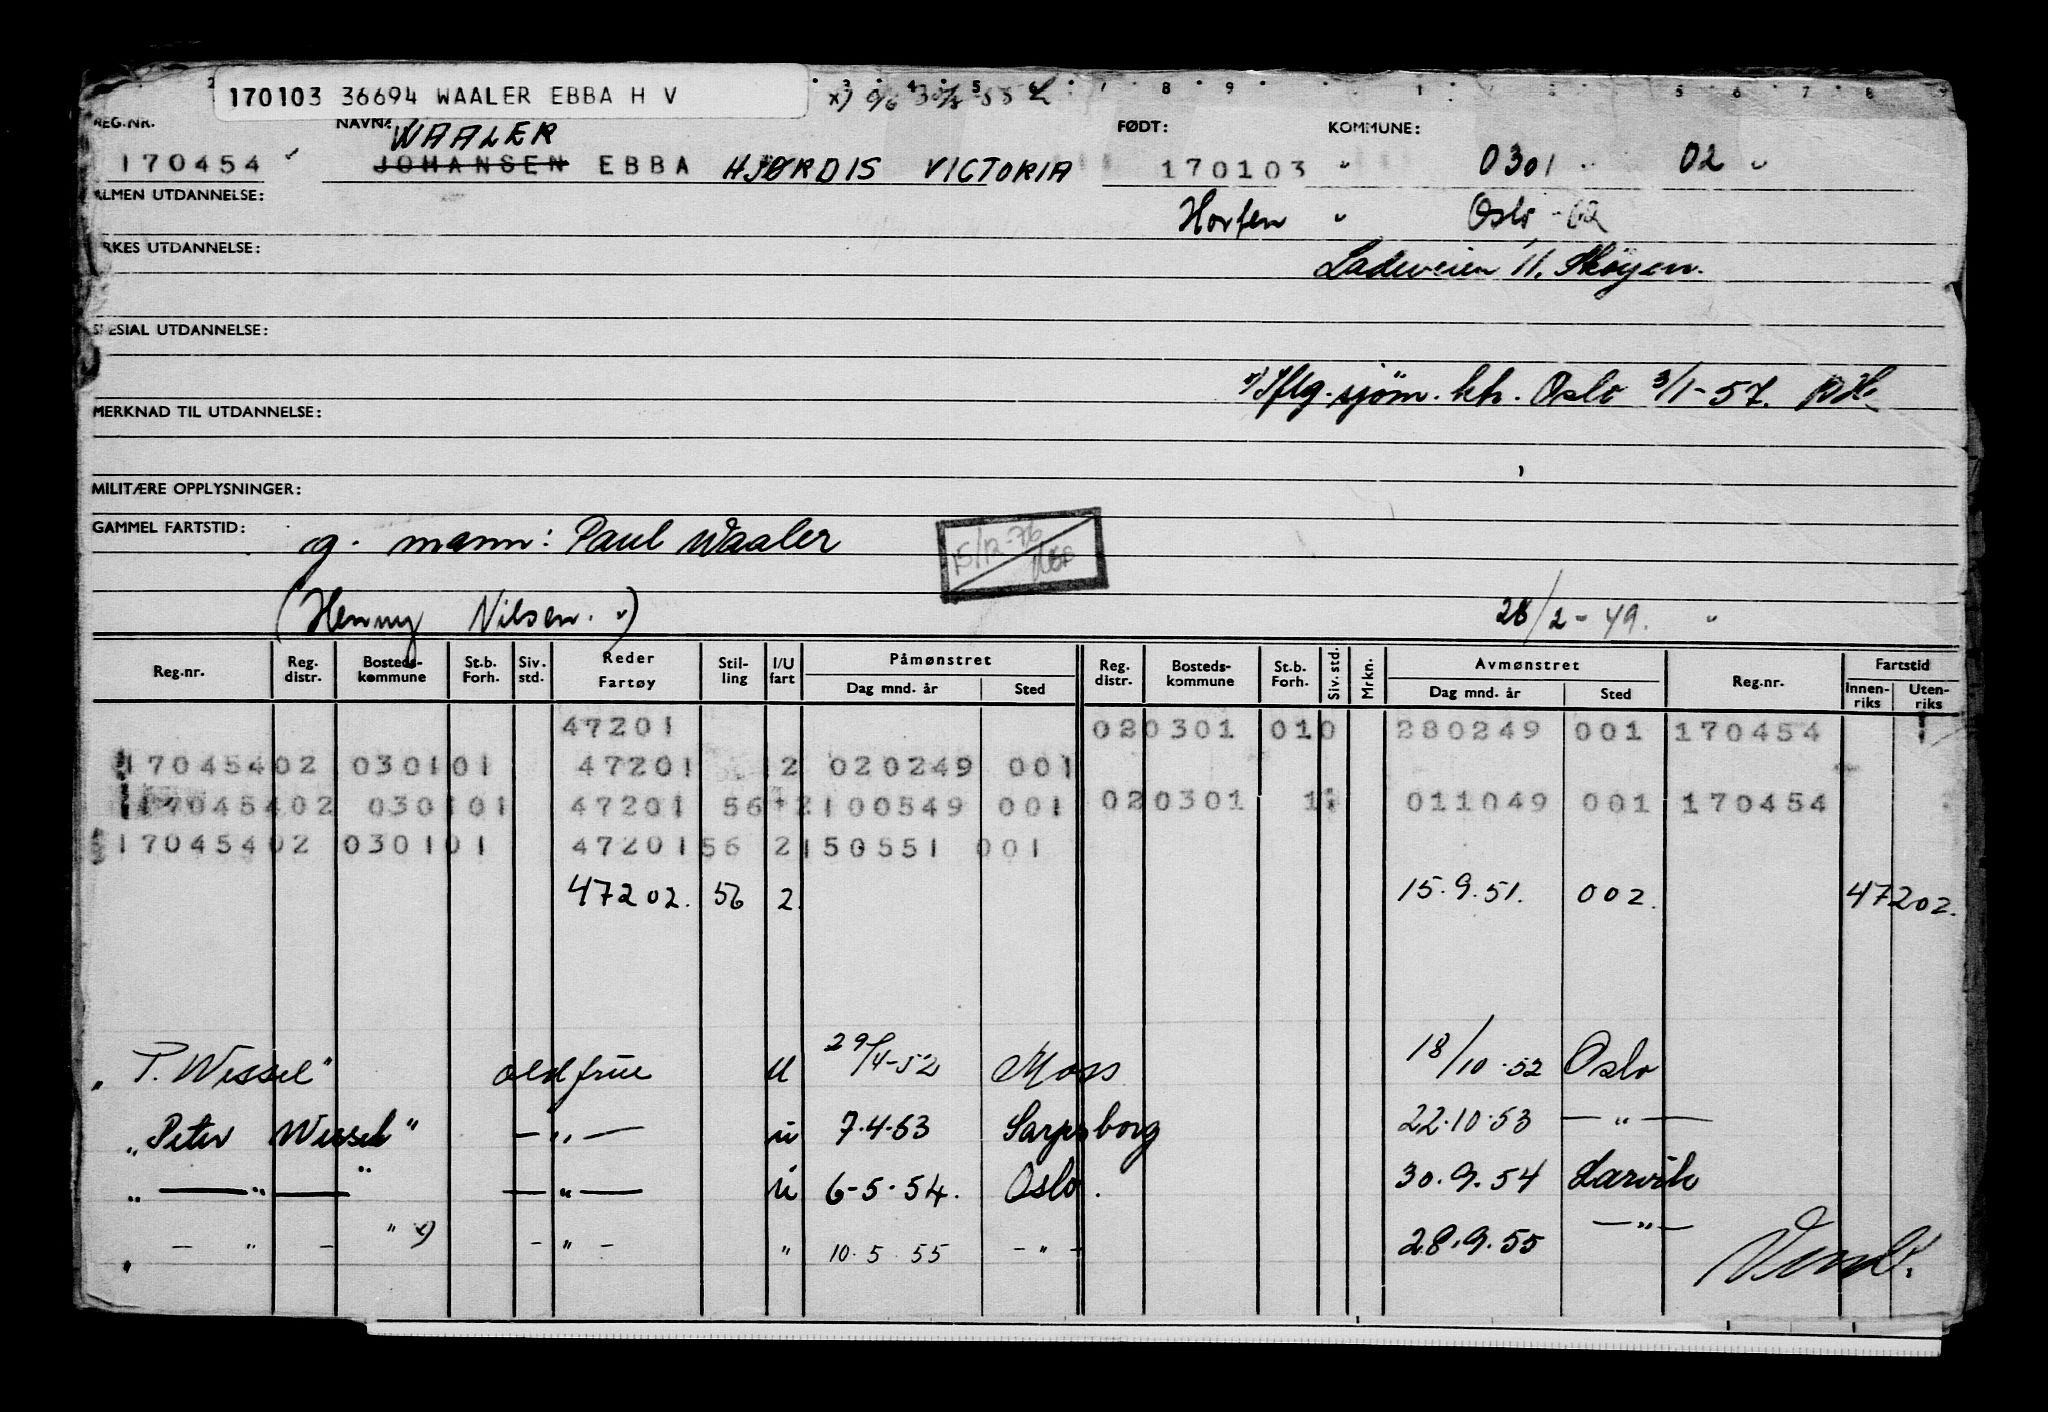 170103 36694 WAALER EBBA H V
3 4 5 7 8 9 1 5 6 7 8 9
REG.NR. NAVN: FØDT: KOMMUNE:
WAALER
170454 JOHANSEN EBBA HJØRDIS VICTORIA 170103 " 0301 02 "
ALMEN UTDANNELSE: Horten " Oslo - 02
YRKES UTDANNELSE: Ladeveien 11. Skøyen.
SPESIAL UTDANNELSE:
x) Iflg. sjøm. kh. Oslo 3/1-57.
MERKNAD TIL UTDANNELSE:
MILITÆRE OPPLYSNINGER:
GAMMEL FARTSTID: g. mann: Paul Waaler 15/12-76
(Henny Nilsen. ") 28/2-49. "
Reg.nr. Reg. distr. Bosteds-kommune St.b. Forh. Siv. std. Reder Fartøy Stil-ling I/U fart Påmønstret Dag mnd. år Sted Reg. distr. Bosteds-kommune St.b. Forh. Siv. std. Mrkn. Avmønstret Dag mnd. år Sted Reg.nr. Fartstid Innen-riks Uten-riks
47201 020301 010 280249 001 170454
170454 02 0301 01 47201 2 020249 001
170454 02 0301 01 47201 56 2 100549 001 020301 1 011049 001 170454
170454 02 0301 01 47201 56 2 150551 001
47202. 56 2. 15.9.51. 002. 47202.
"T. Wessel" oldfrue U 29/4-52 Moss 18/10-52 Oslo
"Peter Wessel" — " — u 7.4.53 Sarpsborg 22.10.53 — " —
" — " — " — " — u 6-5-54. Oslo. 30.9.54 Larvik
" — " — " x) - " - " 10.5.55 - " - 28.9.55 — " —
Vend!